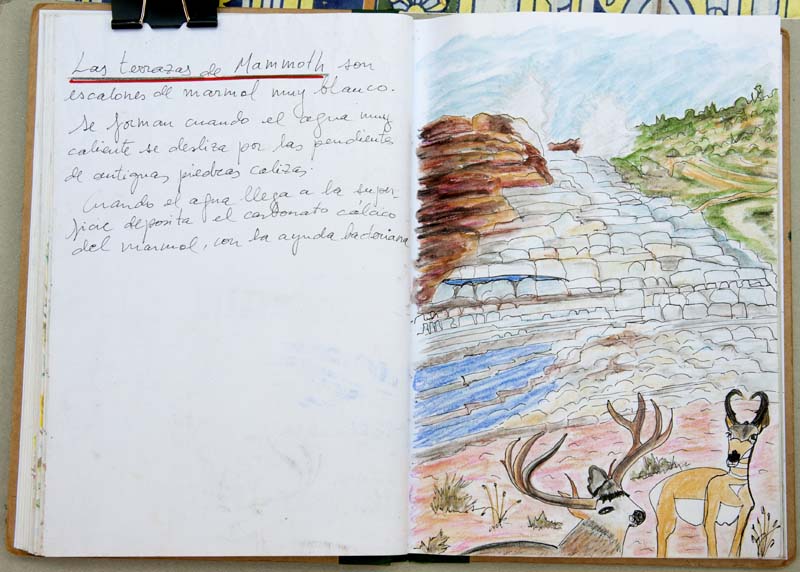 Las terrazas de Mammoth son
escalones de marmol muy blanco.
Se forman cuando el agua muy
caliente se desliza por las pendientes
de antiguas piedras calizas.
Cuando el agua llega a la super-
ficie deposita el carbonato cálcico
del marmol, con la ayuda bacteriana